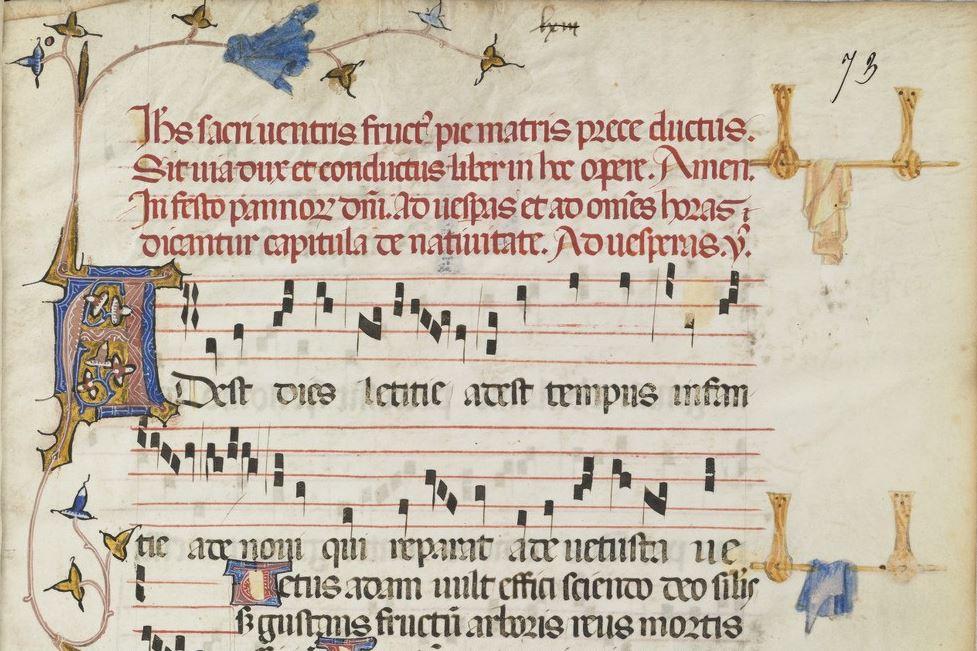 lxiii
73
Ihs sacri uentris fruct᾽ pie matris prece ductus.
Sit uia dux et conductus liber in hoc opere. Amen.
In festo pannoꝝ dñi. Ad uesp̄as et ad om̄es horas
dicantur capitula de natiuitate. Ad uesperas. ꝟ.
Dest dies letitie adest tempus infan
tie ade noui qui reparat ade uetusta ue
etus adam uult effici sciendo deo silis
gustans fructū arboris reus mortis